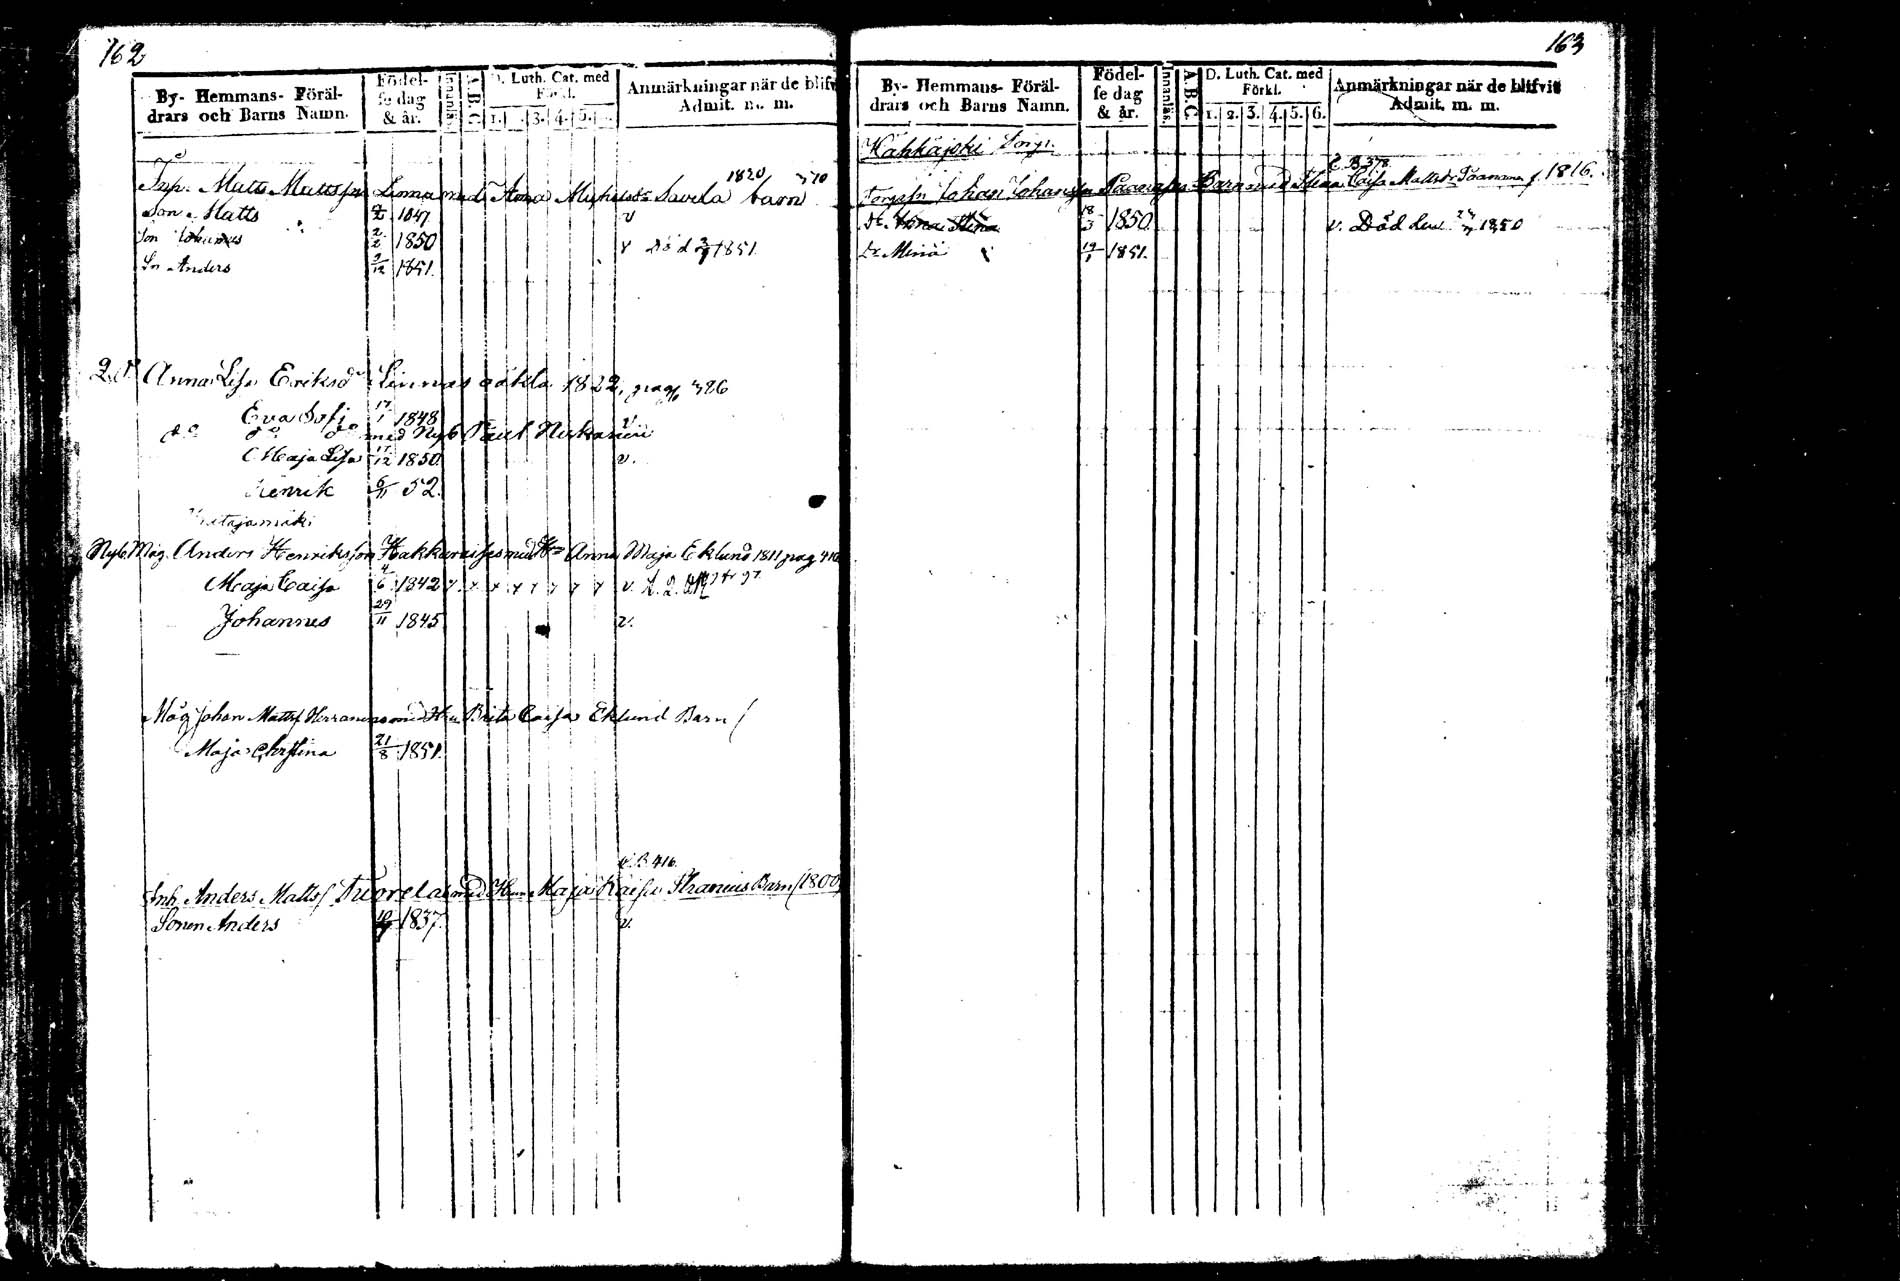 162
By- Hemmans- Föräl-
drars och Barns Namn.
Födel-
se dag
& år.
Innanläs.
A.B.C
D. Luth. Cat. med
Förkl.
1. 3. 4. 5.
Anmärkningar när de blifv
Admit. m. m.
1820
Inh. Matts Mattsson Linna med Anna Savela barn
Son Matts 1847 v
Son Johannes 2/2 1850 v Död 1851.
Sn Anders 9/12 1851.
Anna Lisa Eriksdr Linnas oäkta 1822, pag 386
Eva Sofia 17/1 1848 v
do do do med Nyb Paul Niskanen
Maja Lisa 17/12 1850. v.
Henrik 6/11 52.
Katajamäki
Nyb. Måg. Anders Henriksson Hakkarais med Hu Anna Maja Eklund 1811 pag 416
Maja Caisa 4/6 1842 v.
Johannes 29/11 1845 v.
Måg Johan Mattss Herranens med Hu Brita Caisa Eklund Barn /
Maja Christina 21/8 1851.
C.B. 416.
Inh. Anders Mattss Tuorelas med Hun Maja Kaisa Barn (1800)
Sonen Anders 1837. v.
163
By- Hemmans- Föräl-
drars och Barns Namn.
Födel-
se dag
& år.
Innanläs.
A.B.C
D. Luth. Cat. med
Förkl.
1. 2. 3. 4. 5. 6.
Anmärkningar när de blifvit
Admit. m. m.
Kähkäjoki Torp.
C.B. 378
Johan Johansson Paananens Barn med Stina Caisa Mattsdr Paananen f. 1816.
Dr. Stina 18/3 1850. v. Död 1850
Dr. Mina 19/1 1851.